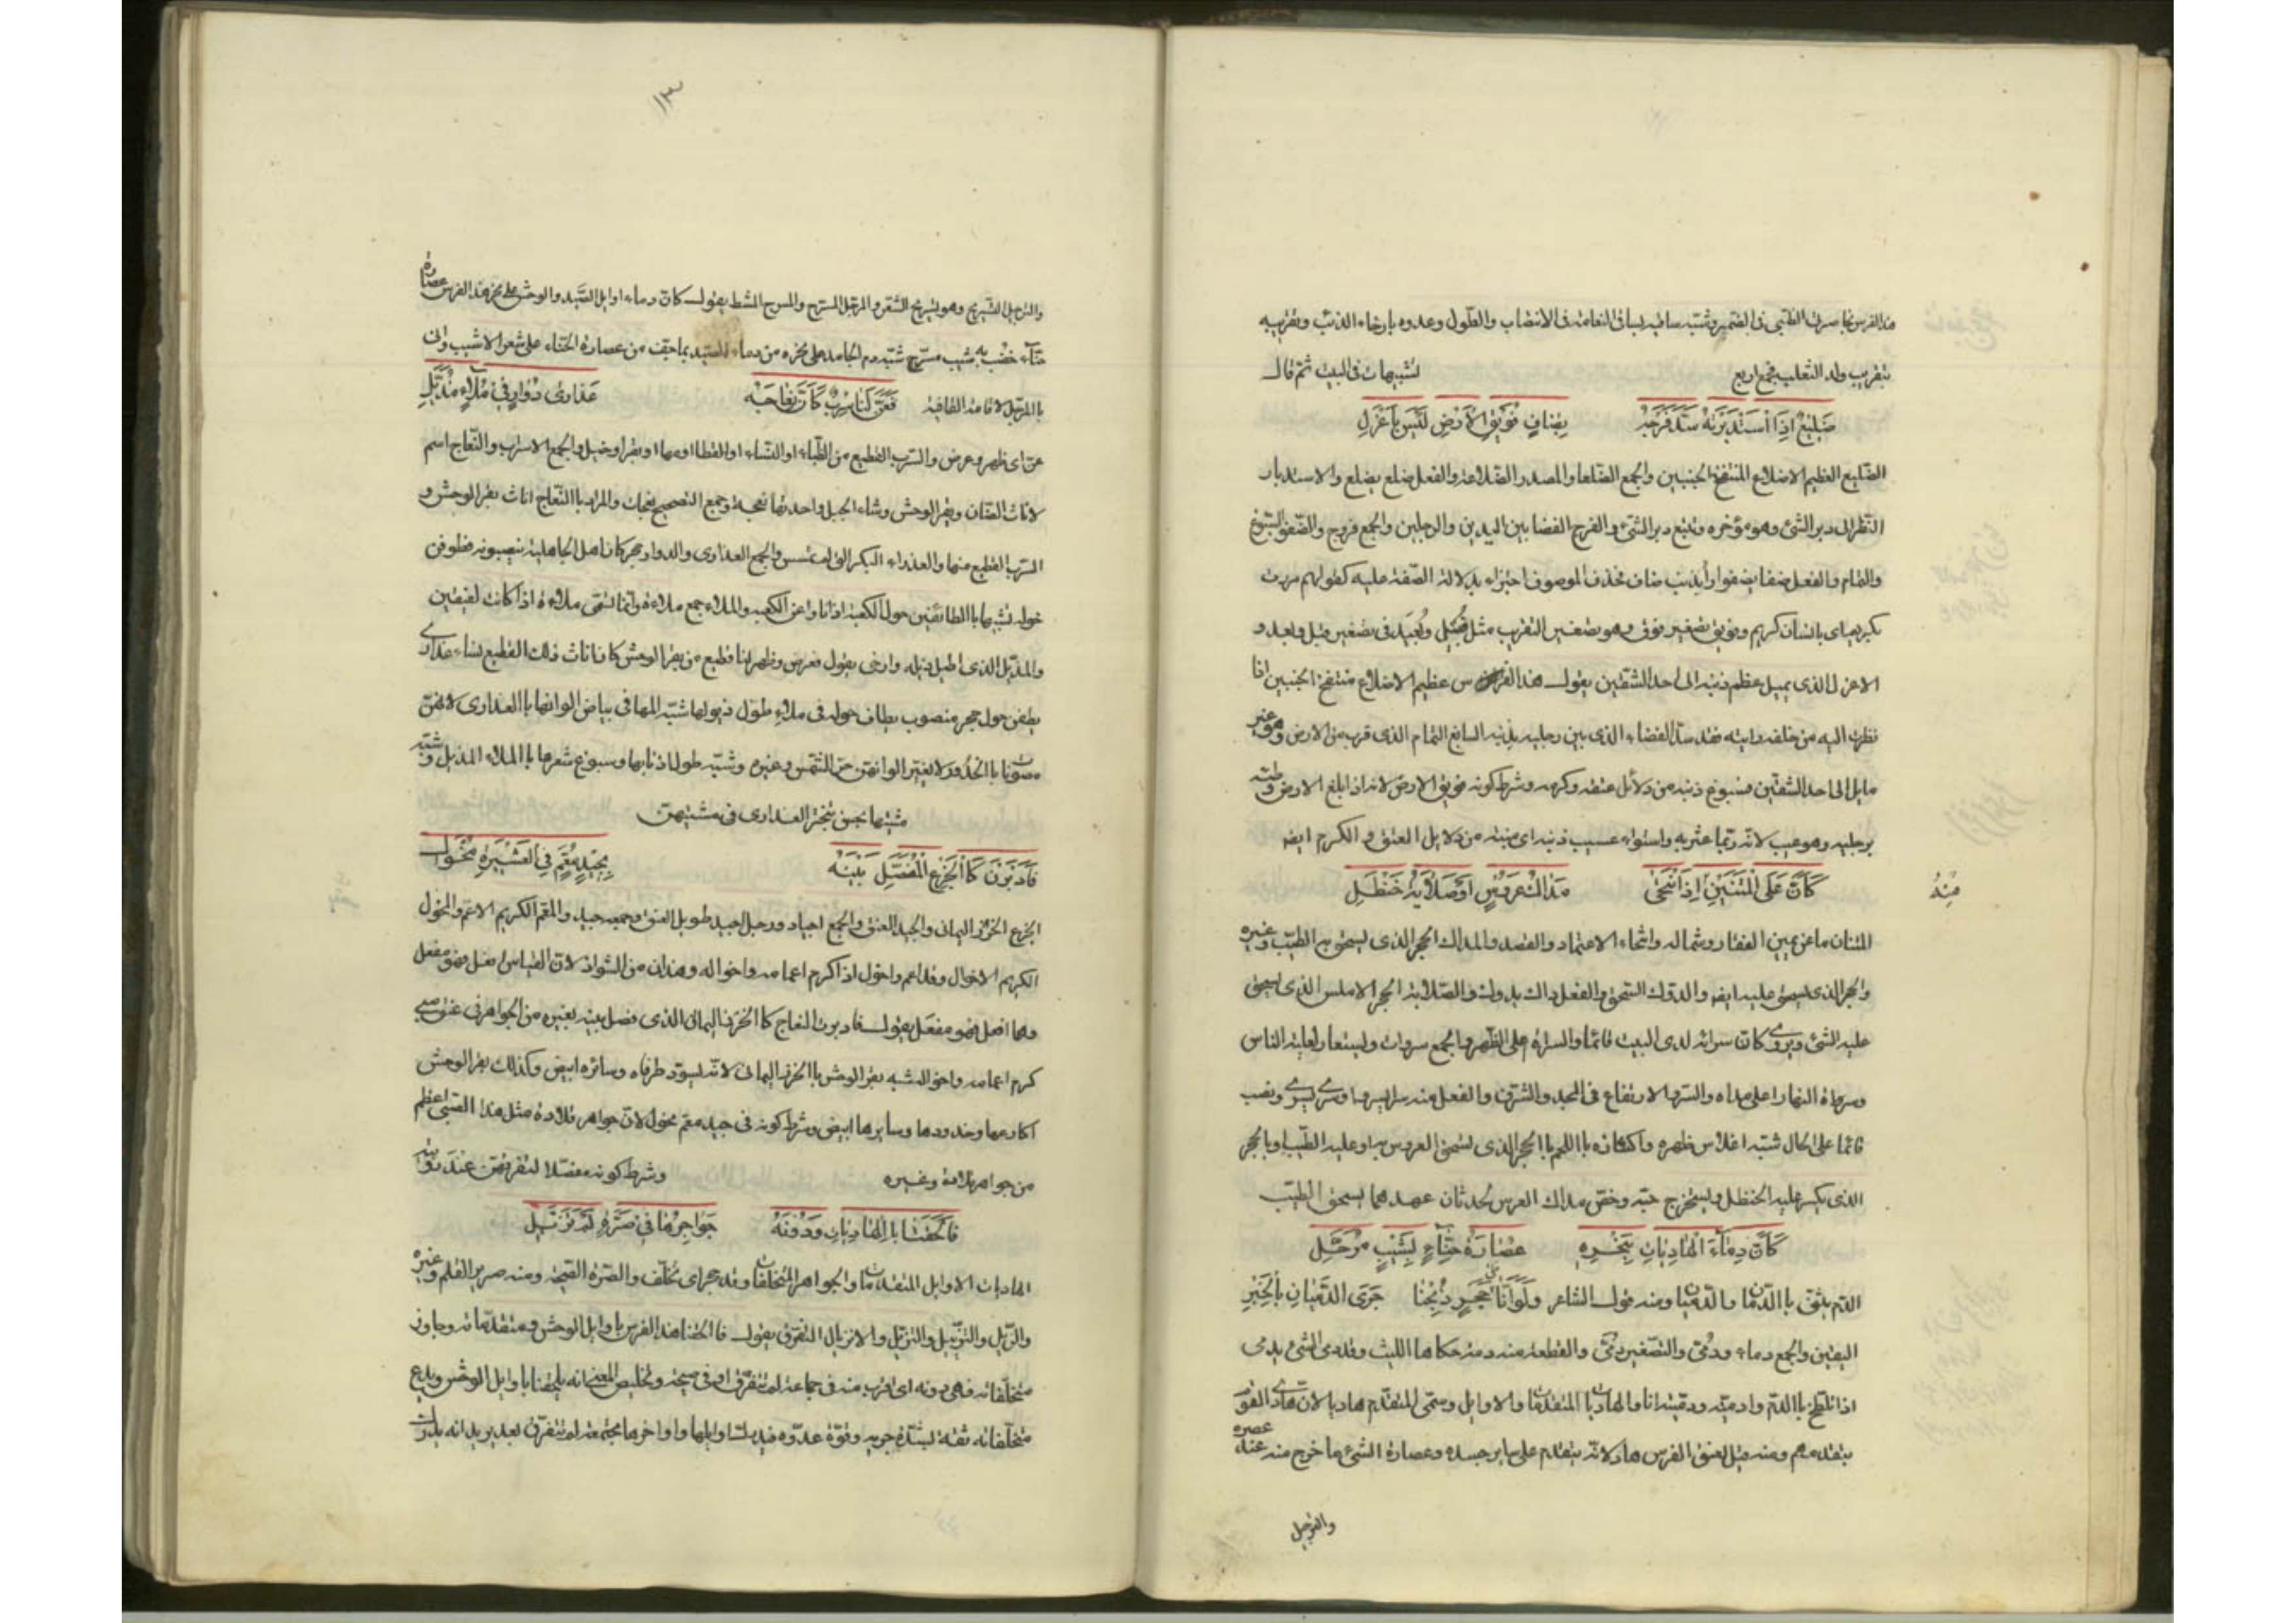 هذا الفرس بخاصرتى الظبى فى الضمر وشبه ساقيه بساقى النعامة فى الانتصاب والطول وعدوه بارخاء الذئب وتقريبه
بتقريب ولد الثعلب فجمع اربع تشبيهات فى البيت ثم قال
ضَلِيْعٌ اِذَا اسْتَدْبَرْتَهُ سَدَّ فَرْجَهُ بِضَافٍ فُوَيْقَ الاَرْضِ لَيْسَ بِاَعْزَلِ
الضليع العظيم الاضلاع المنتفخ الجنبين والجمع الضلعا والمصدر الضلاعة والفعل ضلع يضلع والاستدبار
النظر الى دبر الشئ وهو مؤخره وتتبع دبر الشئ والفرج الفضا بين اليدين والرجلين والجمع فروج والضفو السبوغ
والتمام والفعل ضفا يضفوا راد بذنب ضاف فحذف الموصوف اجتزاء بدلالة الصفة عليه كقولهم مررت
بكريم اى بانسان كريم وفويق تصغير فوق وهو تصغير التقريب مثل قبيل وبعيد فى تصغير قبل وبعد و
الاعزل الذى يميل عظم ذنبه الى احد الشقين يقول هذا الفرس عظيم الاضلاع منتفخ الجنبين اذا
نظرت اليه من خلفه رايته قد سد الفضاء الذى بين رجليه بذنبه السابغ التمام الذى قرب من الارض وهو غير
مايل الى احد الشقين فسبوغ ذنبه من دلائل عتقه وكرمه وشرط كونه فويق الارض لانه اذا بلغ الارض وطئه
برجليه وهو عيب لانه ربما عثر به واستواء عسيب ذنبه اى منبته من دلايل العتق والكرم ايضا
كَاَنَّ عَلَى الْمَتْنَيْنِ اِذَا انْتَحَى مَدَاكُ عَرُوْسٍ اَوْصَلاَيَةُ حَنْظَلِ
مِنْهُ
المتنان ما عن يمين الفقار وشماله وانتحاء الاعتماد والقصد والمداك الحجر الذى يسحق به الطيب وغيره
والحجر الذى يسحق عليه ايضا والدوك السحق والفعل داك يدوك والصلاية الحجر الاملس الذى يسحق
عليه الشئ ويروى كان سراته لدى البيت قائما والسراة اعلى الظهر والجمع سروات ويستعار لعلية الناس
وسراة النهار اعلى مداه والسرو الارتفاع فى المجد والشرف والفعل منه سرا يسروا وسرى يسرى ونصب
قائما على الحال شبه املاس ظهره واكتنازه باللحم باالحجر الذى تسحق العروس به او عليه الطيب او باالحجر
الذى يكسر عليه الحنظل ويستخرج حبه وخص مداك العرس لحدثان عهدهما بسحق الطيب
كَاَنَّ دِمَاءَ الْهَادِيَاتِ بِنَحْرِهِ عُصَارَةُ حِنَّاءٍ بِشَيْبٍ مُرَجَّلِ
الدم يثنى باالدمان والدميان ومنه قول الشاعر وَلَوْ اَنَّا عَلَى حَجَرٍ ذُبِحْنَا جَرَى الدَّمَيَانِ بِالْخَبَرِ
اليقين والجمع دماء ودمى والتصغير دمى والقطعة منه دمة حكاها الليث وقد دمى الشئ يدمى
اذا تلطخ باالدم وادميته ودميته انا والهاديات المتقدمات والاوايل وسمى المتقدم هاديا لان هادى القوم
يتقدمهم ومنه قيل لعنق الفرس هاد لانه يتقدم على ساير جسده وعصارة الشئ ما خرج منه عند عصره
والترجيل
١٣
والترجيل التسريح وهو تسريح الشعر والمرجل المسرح والمسرح المشط يقول كان دماء اوايل الصيد والوحش على نحر هذا الفرس عصارة
حناء خضب به شيب مسرح شبه دم الجامد على نحره من دماء الصيد بما جف من عصارة الحناء على شعر الاشيب واتى
باالمرجل لاقامة القافية فَعَنَّ لَنَا سِرْبٌ كَاَنَّ نِعَاجَهُ عَذَارَى دَوَارٍ فِى مُلاَءٍ مُذَيَّلِ
عن اى ظهر وعرض والسرب القطيع من الظباء او النساء او القطا او مها او بقر او خيل والجمع الاسراب والنعاج اسم
لاناث الضان وبقر الوحش وشاء الجبل واحدتها نعجة وجمع التصحيح نعجات والمراد باالنعاج اناث بقر الوحش و
السرب القطيع منها والعذراء البكر التى لم تمسس والجمع العذارى والدوار حجر كان اهل الجاهلية ينصبونه فيطوفن
حوله تشبها باالطائفين حول الكعبة اذا ناوا عن الكعبة والملاء جمع ملاءة وانما تسمى ملاءة اذا كانت لفقين
والمذيل الذى اطيل ذيله وارخى يقول فعرض وظهر لنا قطيع من بقر الوحش كان اناث ذلك القطيع نساء عذارى
يطفن حول حجر منصوب يطاف حوله فى ملاء طول ذيولها شبه المها فى بياض الوانها باالعذارى لانهن
مصونا باالخدور لا يغير الوانهن حر الشمس وغيره وشبه طول اذنابها وسبوغ شعرها باالملاء المذيل وشبه
مشيها بحسن تبختر العذارى فى مشيتهن
فَاَدْبَرْنَ كَاالْجَزْعِ الْمُفَصَّلِ بَيْنَهُ بِجِيْدِ مُعَمٍّ فِى الْعَشِيْرَةِ مُخْوَلِ
الجزع الخرز اليمانى والجيد العنق والجمع اجياد ورجل اجيد طويل العنق وجمعه جيد والمعم الكريم الاعم والمخول
الكريم الاخوال وقد اعم واخول اذا كرم اعمامه واخواله وهذان من الشواذ لان القياس افعل فهو مفعل
وهما افعل فهو مفعل يقول فادبرت النعاج كاالخرز اليمان الذى فصل بينه بغيره من الجواهر فى عنق صبى
كرم اعمامه واخواله شبه بقر الوحش باالخرز اليمانى لانه يسود طرفاه وسائره ابيض وكذلك بقر الوحش
اكارعها وخدودها وسايرها ابيض وشرط كونه فى جيد معم مخول لان جواهر قلادة مثل هذا الصبى اعظم
من جواهر قلادة وغيره وشرط كونه مفصلا لتفرقهن عند رؤيته
فَاَلْحَقَنَا بِالْهَادِيَاتِ وَدُوْنَهُ جَوَاحِرُهَا فِى صَرَّةٍ لَمْ تَزَيَّلِ
الهاديات الاوايل المتقدمات والجواحر المتخلفات وقد جحر اى تخلف والصرة الصيحة ومنه صرير القلم وغيره
والزيل والتزييل والتزيل والانزيال التفرق يقول فاالحقنا هذا الفرس باوايل الوحش ومتقدماته وجاوز
متخلفاته فهى دونه اى اقرب منه فى جماعة لم تتفرق او فى صيحة وتلخيص المعنى انه يلحقنا باوايل الوحش ويدع
متخلفاته ثقة بشدة جريه وقوة عدوه فيدرك اوايلها واواخرها مجتمعة لم تتفرق بعد يريد انه يدرك